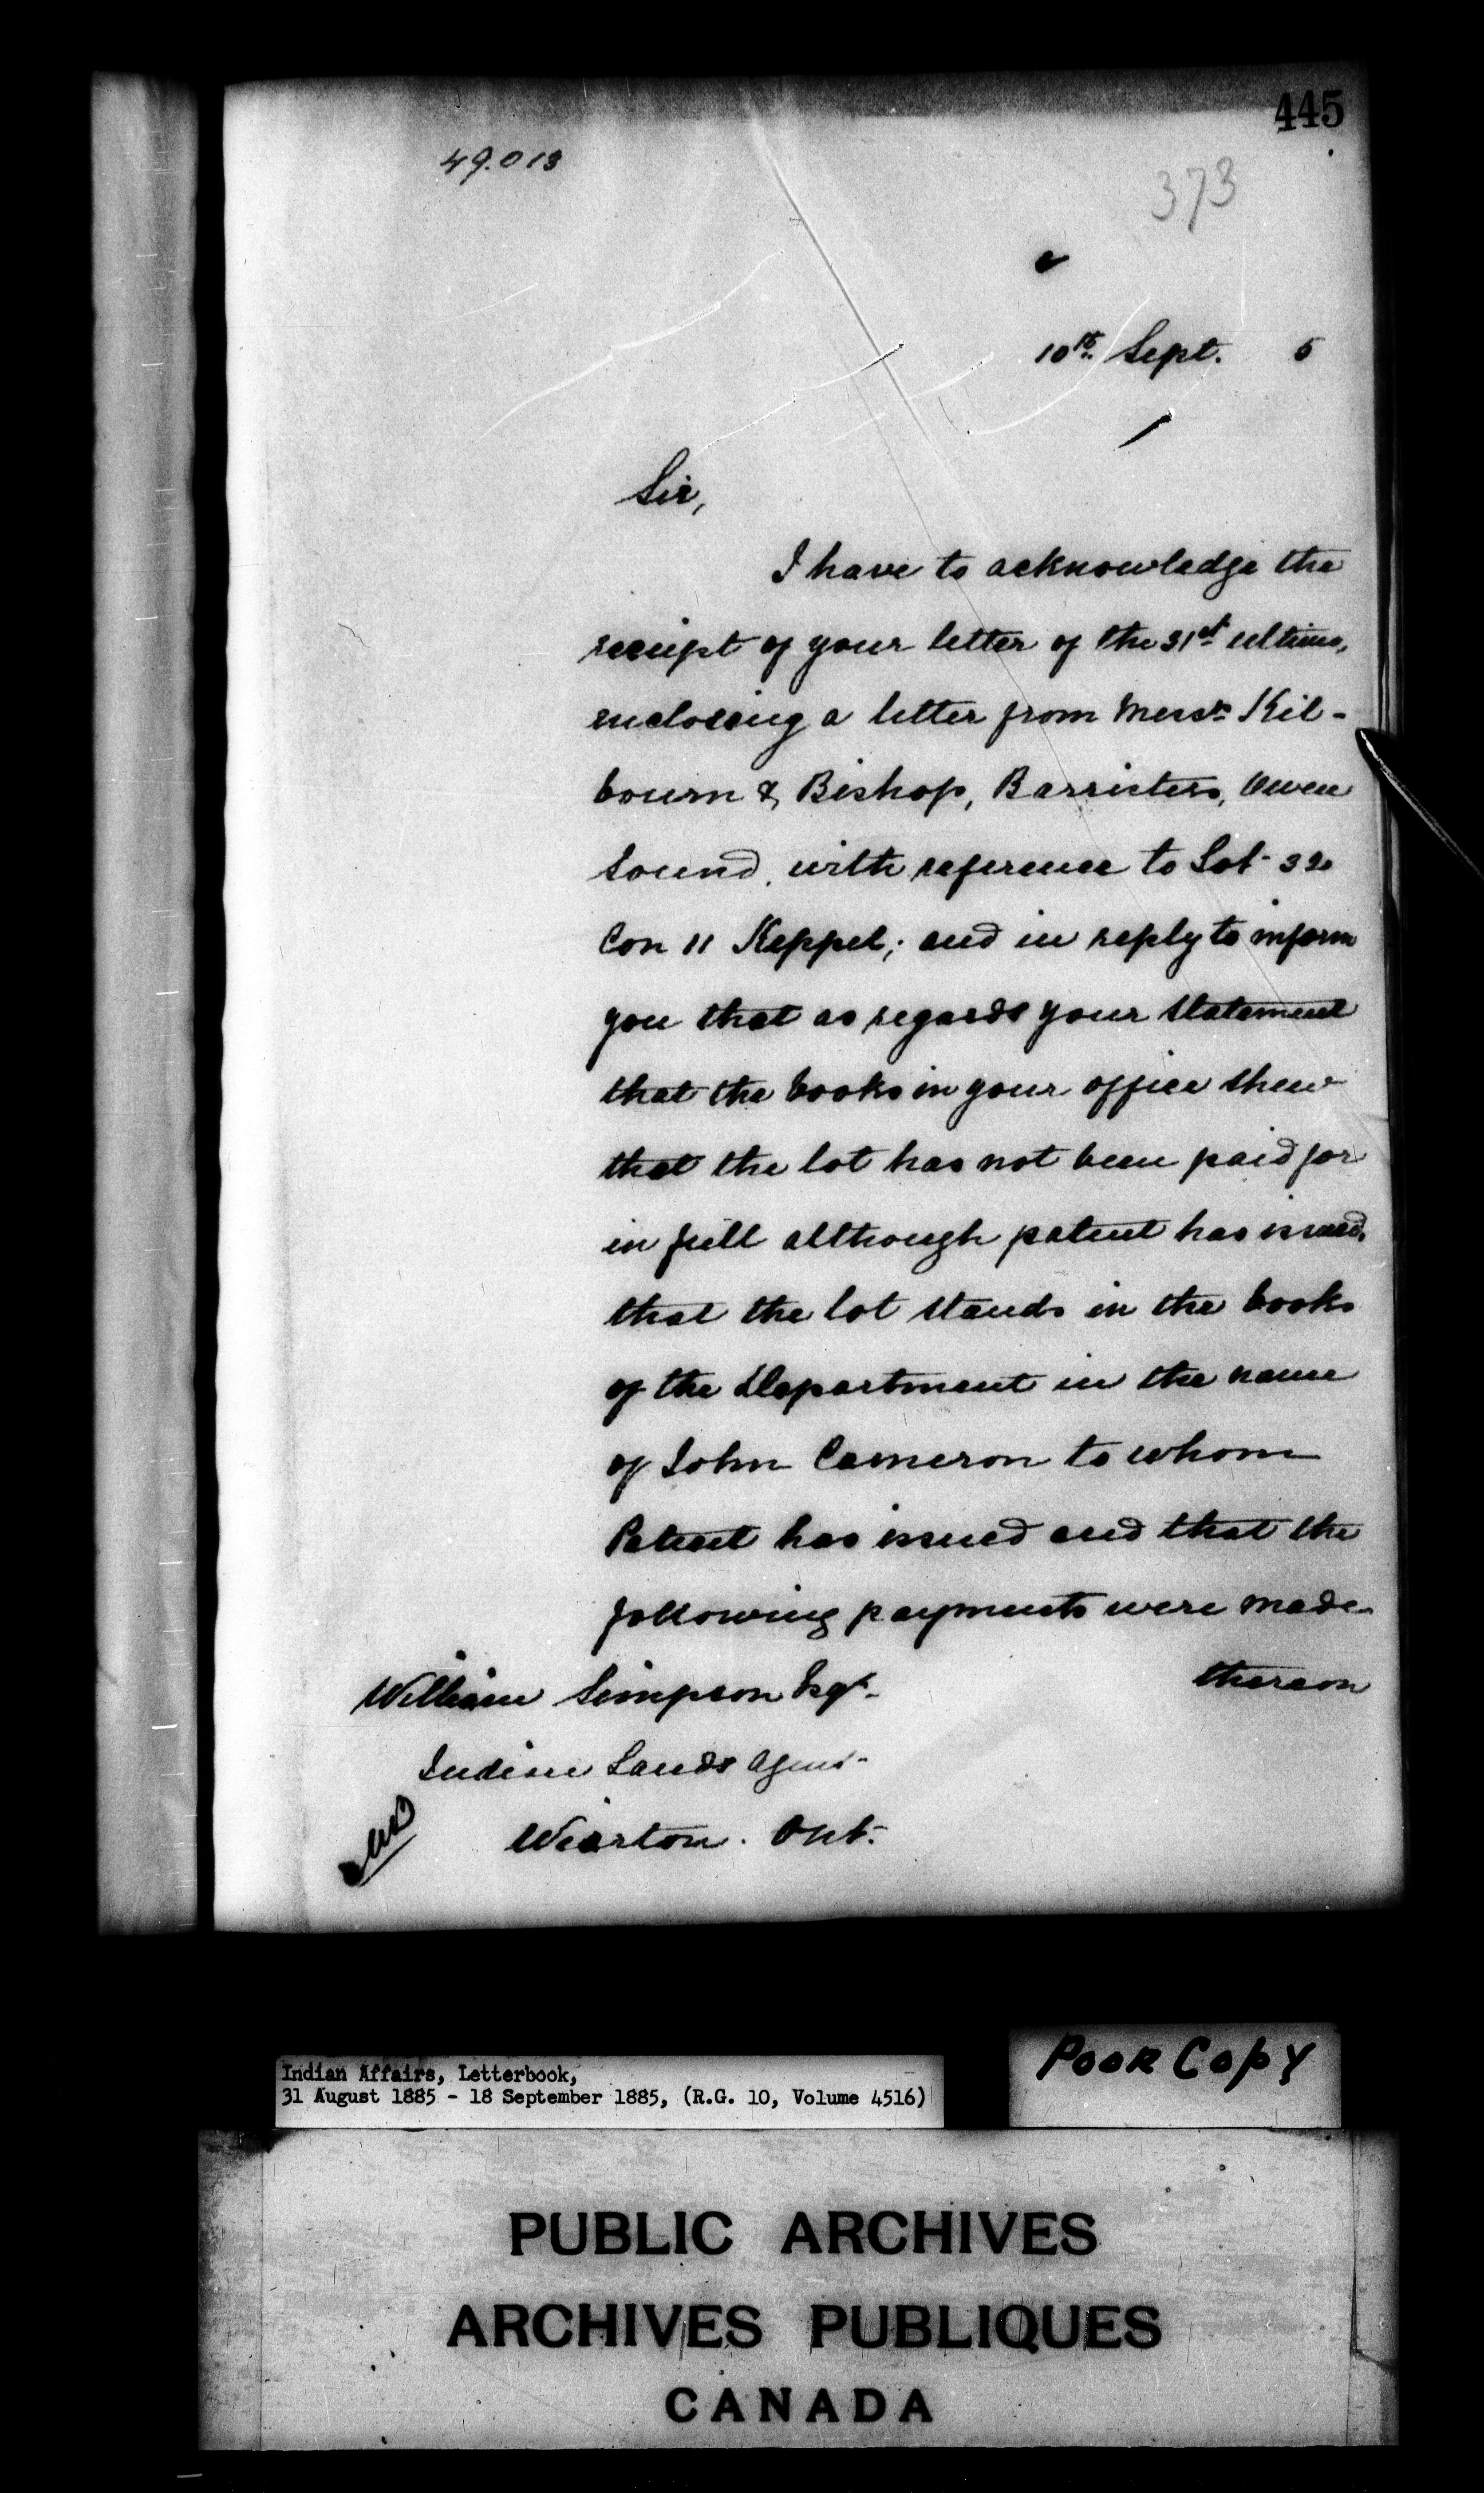 445
49.013
373
10th Sept. 5
Sir,
I have to acknowledge the
receipt of your letter of the 31st ultimo,
enclosing a letter from Messrs Kil-
bourn & Bishop, Barristers, Owen
Sound, with reference to Lot 32
Con 11 Keppel; and in reply to inform
you that as regards your statement
that the books in your office shew
that the lot has not been paid for
in full although patent has issued,
that the lot stands in the books
of the Department in the name
of John Cameron to whom
Patent has issued and that the
following payments were made
thereon
William Simpson Esqr.
Indian Lands Agent
Wiarton. Ont.
Indian Affairs, Letterbook,
31 August 1885 - 18 September 1885, (R.G. 10, Volume 4516)
Poor Copy
PUBLIC ARCHIVES
ARCHIVES PUBLIQUES
CANADA